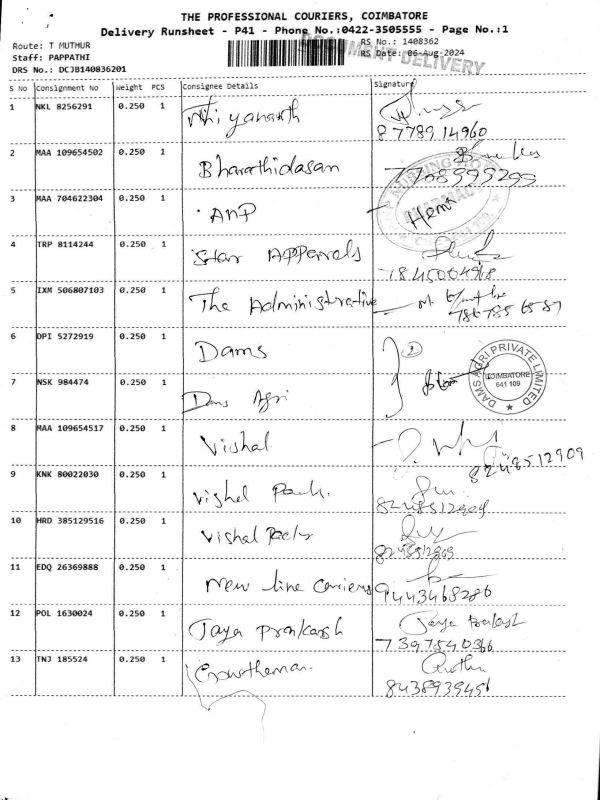 THE PROFESSIONAL COURIERS, COIMBATORE
Delivery Runsheet - P41 - Phone No.:0422-3505555 - Page No.:1
DOCUMENT DELIVERY
Route: T MUTHUR RS No.: 1408362
Staff: PAPPATHI RS Date: 06-Aug-2024
DRS No.: DCJB140836201
S No Consignment No Weight PCS Consignee Details Signature
1 NKL 8256291 0.250 1
8778914960
2 MAA 109654502 0.250 1 Bharathidasan
7708999299
3 MAA 704622304 0.250 1 ANP Hema
PHARMACY
4 TRP 8114244 0.250 1 Star Apperrals
7845004968
5 IXM 506807103 0.250 1 The Administrative
6 DPI 5272919 0.250 1 Dams
DAMS AGRI PRIVATE LIMITED
COIMBATORE
641 109
7 NSK 984474 0.250 1 Dams Agri
8 MAA 109654517 0.250 1 Vishal
8248512909
9 KNK 80022030 0.250 1 Vishal Pack.
8248512909
10 HRD 385129516 0.250 1 Vishal Packs
8248512909
11 EDQ 26369888 0.250 1 New line carriers
9443468286
12 POL 1630024 0.250 1 Jaya Prakash Jaya Prakash
7397540366
13 TNJ 185524 0.250 1 Gowthaman.
8438939456